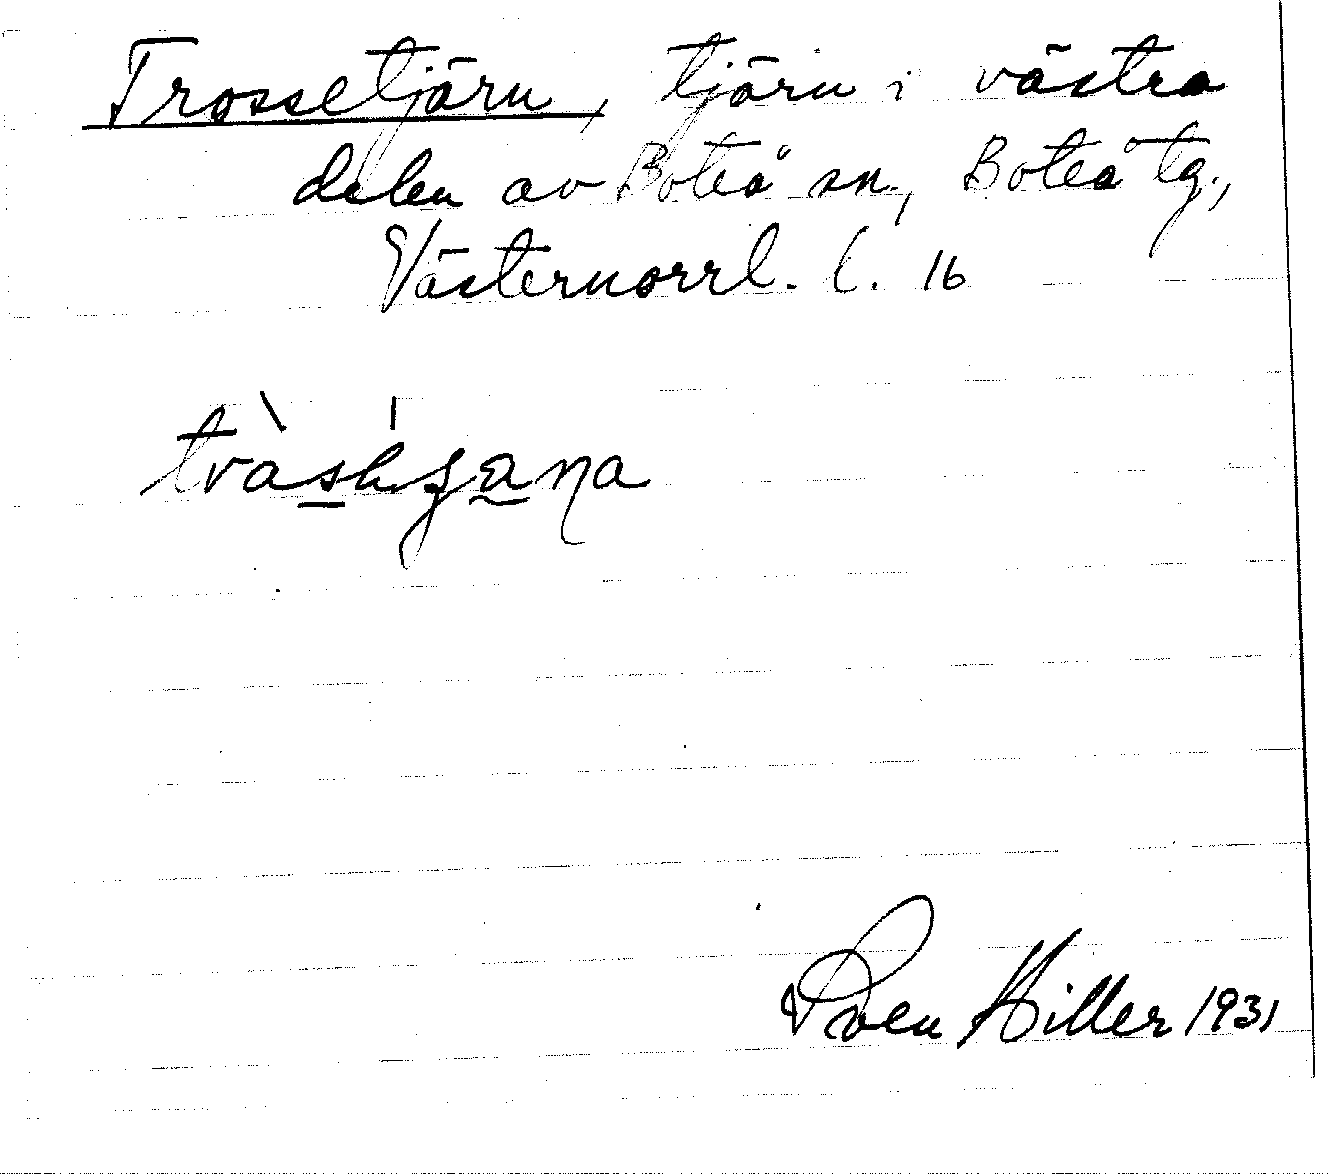 Trossetjärn, tjärn i västra
delen av Boteå sn., Boteå tg.,
Västernorrl. l. 16
Sven Hiller 1931